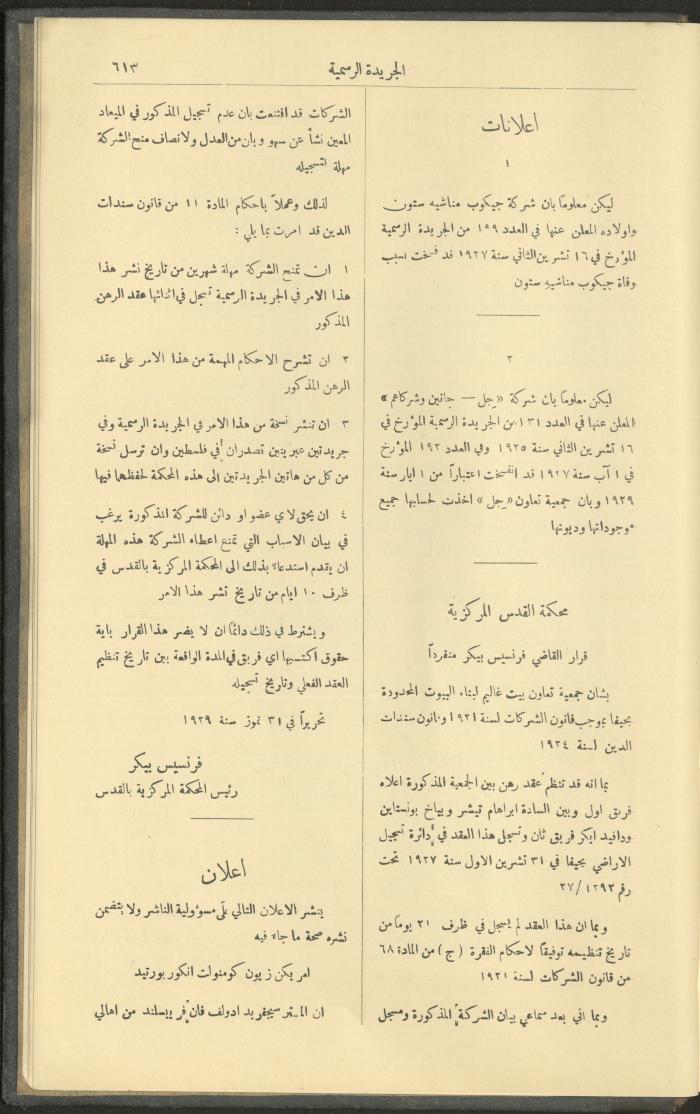 الجريدة الرسمية
٦١٣
اعلانات
١
ليكن معلومًا بان شركة جيكوب مناشيه ستون
واولاده المعلن عنها في العدد ١٩٩ من الجريدة الرسمية
المؤرخ في ١٦ تشرين الثاني سنة ١٩٢٧ قد فسخت بسبب
وفاة جيكوب مناشيه ستون
٢
ليكن معلومًا بان شركة «رجل — جانين وشركاهم»
المعلن عنها في العدد ١٣١ من الجريدة الرسمية المؤرخ في
١٦ تشرين الثاني سنة ١٩٢٥ وفي العدد ١٩٢ المؤرخ
في ١ آب سنة ١٩٢٧ قد انفسخت اعتبارًا من ١ ايار سنة
١٩٢٩ وبان جمعية تعاون «رجل» اخذت لحسابها جميع
موجوداتها وديونها
محكمة القدس المركزية
قرار القاضي فرنسيس بيكر منفردًا
بشان جمعية تعاون بيت غاليم لبناء البيوت المحدودة
بحيفا بموجب قانون الشركات لسنة ١٩٢١ وقانون سندات
الدين لسنة ١٩٢٤
بما انه قد تنظم عقد رهن بين الجمعية المذكورة اعلاه
فريق اول وبين السادة ابراهام تيشر وبياخ بونستاين
ودافيد ابكر فريق ثان وتسجل هذا العقد في دائرة تسجيل
الاراضي بحيفا في ٣١ تشرين الاول سنة ١٩٢٧ تحت
رقم ١٢٩٢/٢٧
وبما ان هذا العقد لم يسجل في ظرف ٢١ يومًا من
تاريخ تنظيمه توفيقًا لاحكام الفقرة (ج) من المادة ٦٨
من قانون الشركات لسنة ١٩٢١
وبما اني بعد سماعي بيان الشركة المذكورة ومسجل
الشركات قد اقتنعت بان عدم تسجيل المذكور في الميعاد
المعين نشأ عن سهو وبان من العدل ولانصاف منح الشركة
مهلة لتسجيله
لذلك وعملاً باحكام المادة ١١ من قانون سندات
الدين قد امرت بما يلي :
١ ان تمنح الشركة مهلة شهرين من تاريخ نشر هذا
هذا الامر في الجريدة الرسمية تسجل في اثنائها عقد الرهن
المذكور
٢ ان تشرح الاحكام المهمة من هذا الامر على عقد
الرهن المذكور
٣ ان تنشر نسخة من هذا الامر في الجريدة الرسمية وفي
جريدتين عبريتين تصدران في فلسطين وان ترسل نسخة
من كل من هاتين الجريدتين الى هذه المحكمة لحفظها فيها
٤ ان يحق لاي عضو او دائن للشركة المذكورة يرغب
في بيان الاسباب التي تمنع اعطاء الشركة هذه المهلة
ان يقدم استدعاء بذلك الى المحكمة المركزية بالقدس في
ظرف ١٠ ايام من تاريخ نشر هذا الامر
ويشترط في ذلك دائمًا ان لا يضر هذا القرار باية
حقوق اكتسبها اي فريق في المدة الواقعة بين تاريخ تنظيم
العقد الفعلي وتاريخ تسجيله
تحريرًا في ٣١ تموز سنة ١٩٢٩
فرنسيس بيكر
رئيس المحكمة المركزية بالقدس
اعلان
ينشر الاعلان التالي على مسؤولية الناشر ولا يتضمن
نشره صحة ما جاء فيه
امريكن زيون كومنولت انكوربورتيد
ان المستر سيجفريد ادولف فان فريسلند من اهالي